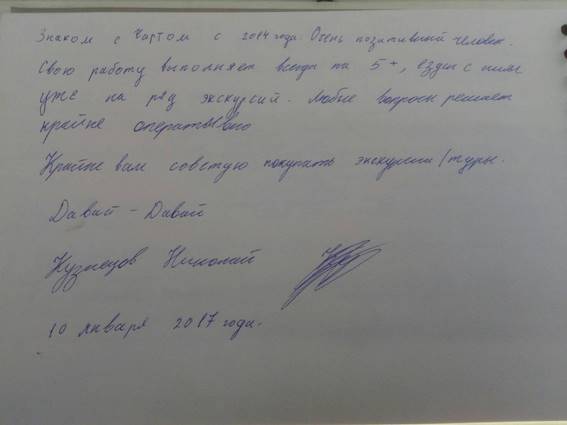 Знаком с Чартом с 2014 года. Очень позитивный человек.
Свою работу выполняет всегда на 5+, ездил с ним
уже на ряд экскурсий. Любые вопросы решает
крайне оперативно
Крайне вам советую покупать экскурсии/туры.
Давай - Давай
Кузнецов Николай
10 января 2017 года.